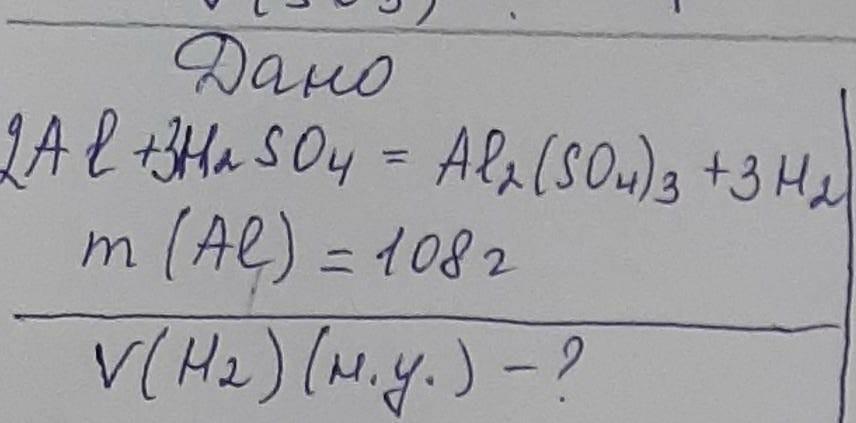 Дано
2Al + 3H₂SO₄ = Al₂(SO₄)₃ + 3H₂
m (Al) = 108 г
V(H₂) (н.у.) - ?